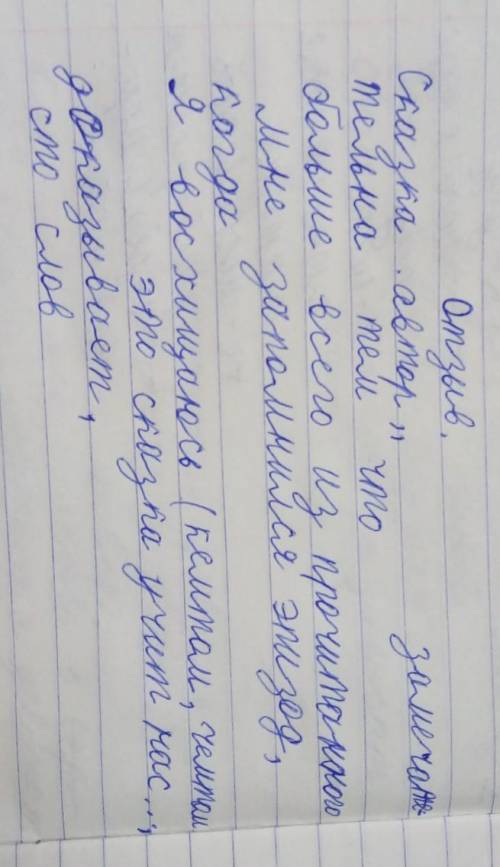 Отзыв.
Сказка. автор „ замечате
тельна тем что
больше всего из прочитанного
мне запомнился эпизод,
когда
Я восхищаюсь (кемтам, чемтам
это сказка учит нас...,
доказывает,
сто слов